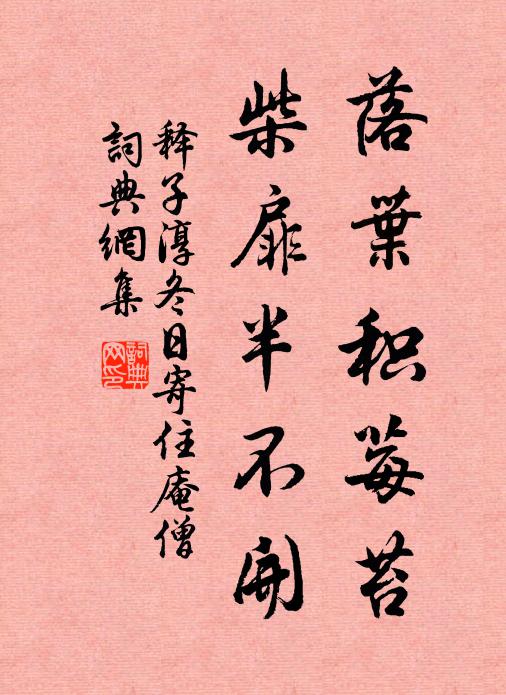 落葉积莓苔
柴扉半不開
释子淳冬日寄住庵僧
詞典網集
詞典
网印